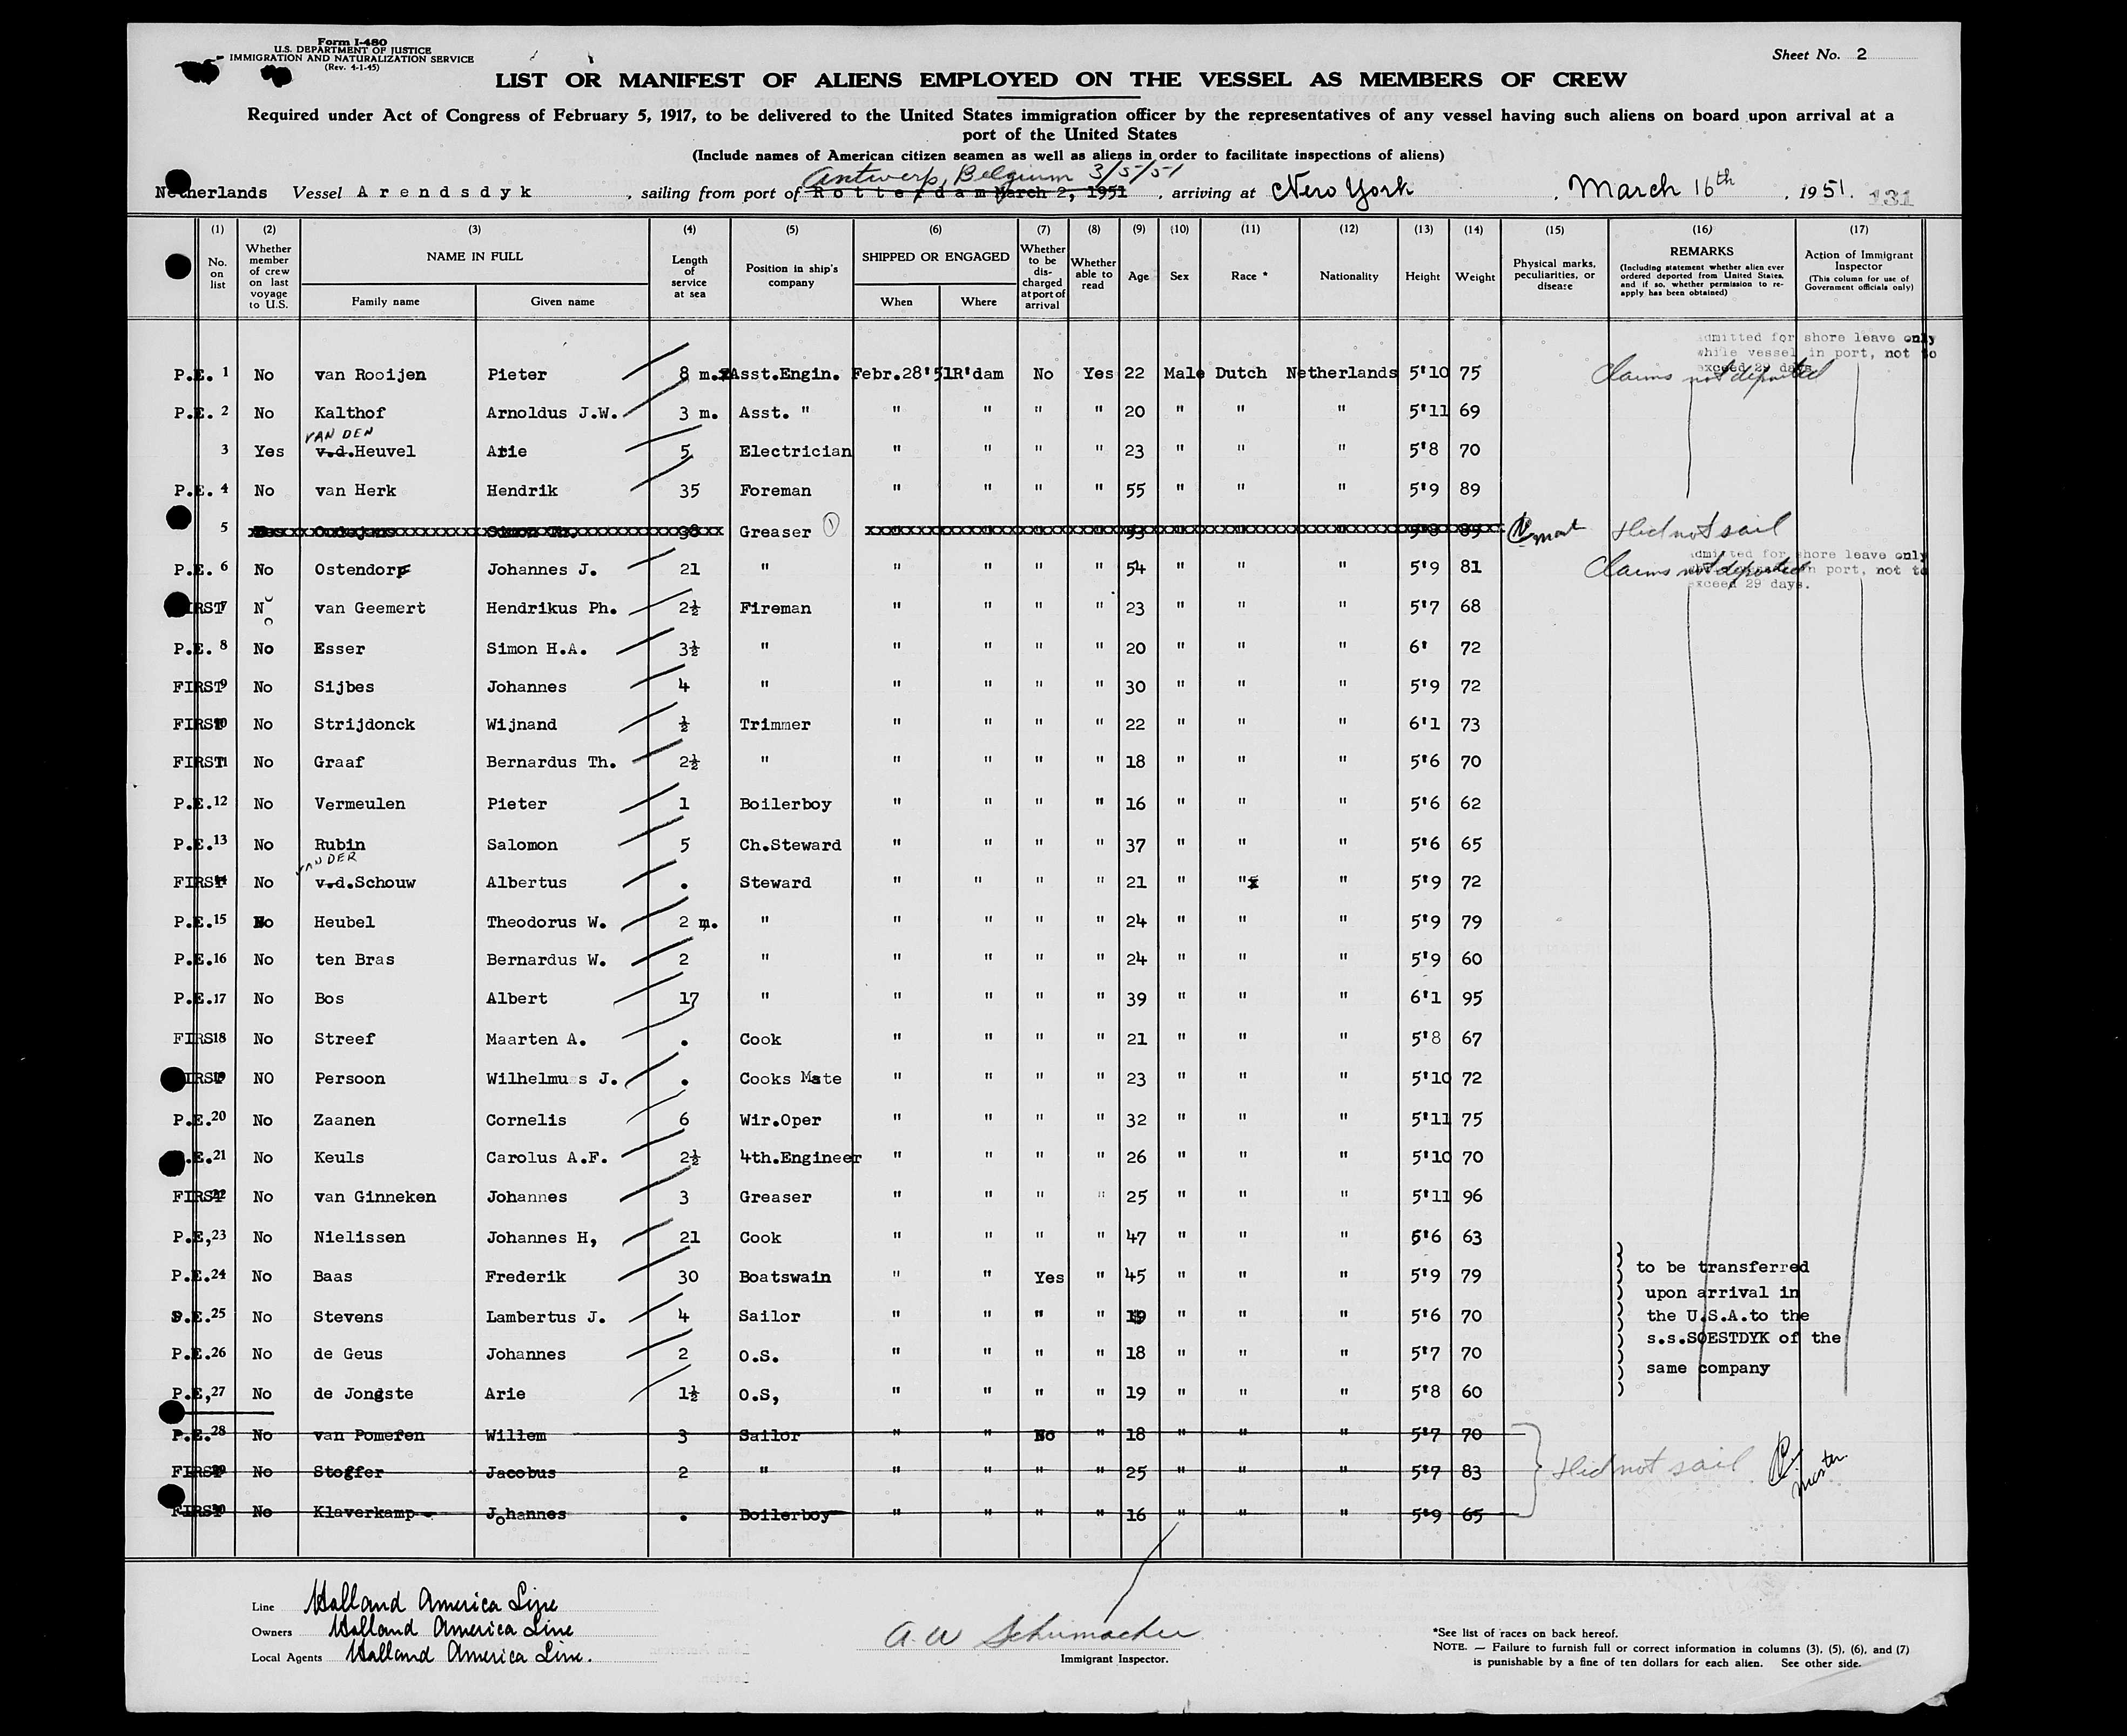 Form I-480
U.S. DEPARTMENT OF JUSTICE
IMMIGRATION AND NATURALIZATION SERVICE
(Rev. 4-1-45)
Sheet No. 2
LIST OR MANIFEST OF ALIENS EMPLOYED ON THE VESSEL AS MEMBERS OF CREW
Required under Act of Congress of February 5, 1917, to be delivered to the United States immigration officer by the representatives of any vessel having such aliens on board upon arrival at a
port of the United States
(Include names of American citizen seamen as well as aliens in order to facilitate inspections of aliens)
Antwerp, Belgium 3/5/51
Netherlands Vessel Arendsdyk, sailing from port of Rotterdam March 2, 1951, arriving at New York, March 16th, 1951. 131
(1) (2) (3) (4) (5) (6) (7) (8) (9) (10) (11) (12) (13) (14) (15) (16) (17)
No. on list
Whether member of crew on last voyage to U.S.
NAME IN FULL
Family name
Given name
Length of service at sea
Position in ship's company
SHIPPED OR ENGAGED
When
Where
Whether to be discharged at port of arrival
Whether able to read
Age
Sex
Race *
Nationality
Height
Weight
Physical marks, peculiarities, or disease
REMARKS
(Including statement whether alien ever ordered deported from United States, and if so, whether permission to re-apply has been obtained)
Action of Immigrant Inspector
(This column for use of Government officials only)
admitted for shore leave only
while vessel in port, not to
exceed 29 days.
P.E. 1 No van Rooijen Pieter 8 m. Asst.Engin. Febr.28'51 R'dam No Yes 22 Male Dutch Netherlands 5'10 75 Claims not deported
P.E. 2 No Kalthof Arnoldus J.W. 3 m. Asst. " " " " " 20 " " " 5'11 69
VAN DEN
3 Yes v.d.Heuvel Arie 5 Electrician " " " " 23 " " " 5'8 70
P.E. 4 No van Herk Hendrik 35 Foreman " " " " 55 " " " 5'9 89
5 Oudejans Simon Th. 38 Greaser 53 5'8 89 Did not sail
admitted for shore leave only
P.E. 6 No Ostendorf Johannes J. 21 " " " " " 54 " " " 5'9 81 Claims not deported in port, not to
exceed 29 days.
FIRST 7 No van Geemert Hendrikus Ph. 2½ Fireman " " " " 23 " " " 5'7 68
P.E. 8 No Esser Simon H.A. 3½ " " " " " 20 " " " 6' 72
FIRST 9 No Sijbes Johannes 4 " " " " " 30 " " " 5'9 72
FIRST 10 No Strijdonck Wijnand ½ Trimmer " " " " 22 " " " 6'1 73
FIRST 11 No Graaf Bernardus Th. 2½ " " " " " 18 " " " 5'6 70
P.E. 12 No Vermeulen Pieter 1 Boilerboy " " " " 16 " " " 5'6 62
P.E. 13 No Rubin Salomon 5 Ch.Steward " " " " 37 " " " 5'6 65
VAN DER
FIRST 14 No v.d.Schouw Albertus . Steward " " " " 21 " " " 5'9 72
P.E. 15 No Heubel Theodorus W. 2 m. " " " " " 24 " " " 5'9 79
P.E. 16 No ten Bras Bernardus W. 2 " " " " " 24 " " " 5'9 60
P.E. 17 No Bos Albert 17 " " " " " 39 " " " 6'1 95
FIRST 18 No Streef Maarten A. . Cook " " " " 21 " " " 5'8 67
FIRST 19 NO Persoon Wilhelmus J. . Cooks Mate " " " " 23 " " " 5'10 72
P.E. 20 No Zaanen Cornelis 6 Wir.Oper " " " " 32 " " " 5'11 75
P.E. 21 No Keuls Carolus A.F. 2½ 4th.Engineer " " " " 26 " " " 5'10 70
FIRST 22 No van Ginneken Johannes 3 Greaser " " " " 25 " " " 5'11 96
P.E, 23 No Nielissen Johannes H, 21 Cook " " " " 47 " " " 5'6 63
P.E. 24 No Baas Frederik 30 Boatswain " " Yes " 45 " " " 5'9 79 to be transferred
upon arrival in
P.E. 25 No Stevens Lambertus J. 4 Sailor " " " " 19 " " " 5'6 70 the U.S.A.to the
s.s.SOESTDYK of the
P.E. 26 No de Geus Johannes 2 O.S. " " " " 18 " " " 5'7 70 same company
P.E, 27 No de Jongste Arie 1½ O.S, " " " " 19 " " " 5'8 60
P.E. 28 No van Pomeren Willem 3 Sailor " " No " 18 " " " 5'7 70
FIRST 29 No Stoffer Jacobus 2 " " " " " 25 " " " 5'7 83 Did not sail
Master
FIRST 30 No Klaverkamp Johannes . Boilerboy " " " " 16 " " " 5'9 65
Line Holland America Line
Owners Holland America Line
Local Agents Holland America Line.
A. W Schumacher
Immigrant Inspector.
*See list of races on back hereof.
NOTE. — Failure to furnish full or correct information in columns (3), (5), (6), and (7)
is punishable by a fine of ten dollars for each alien. See other side.